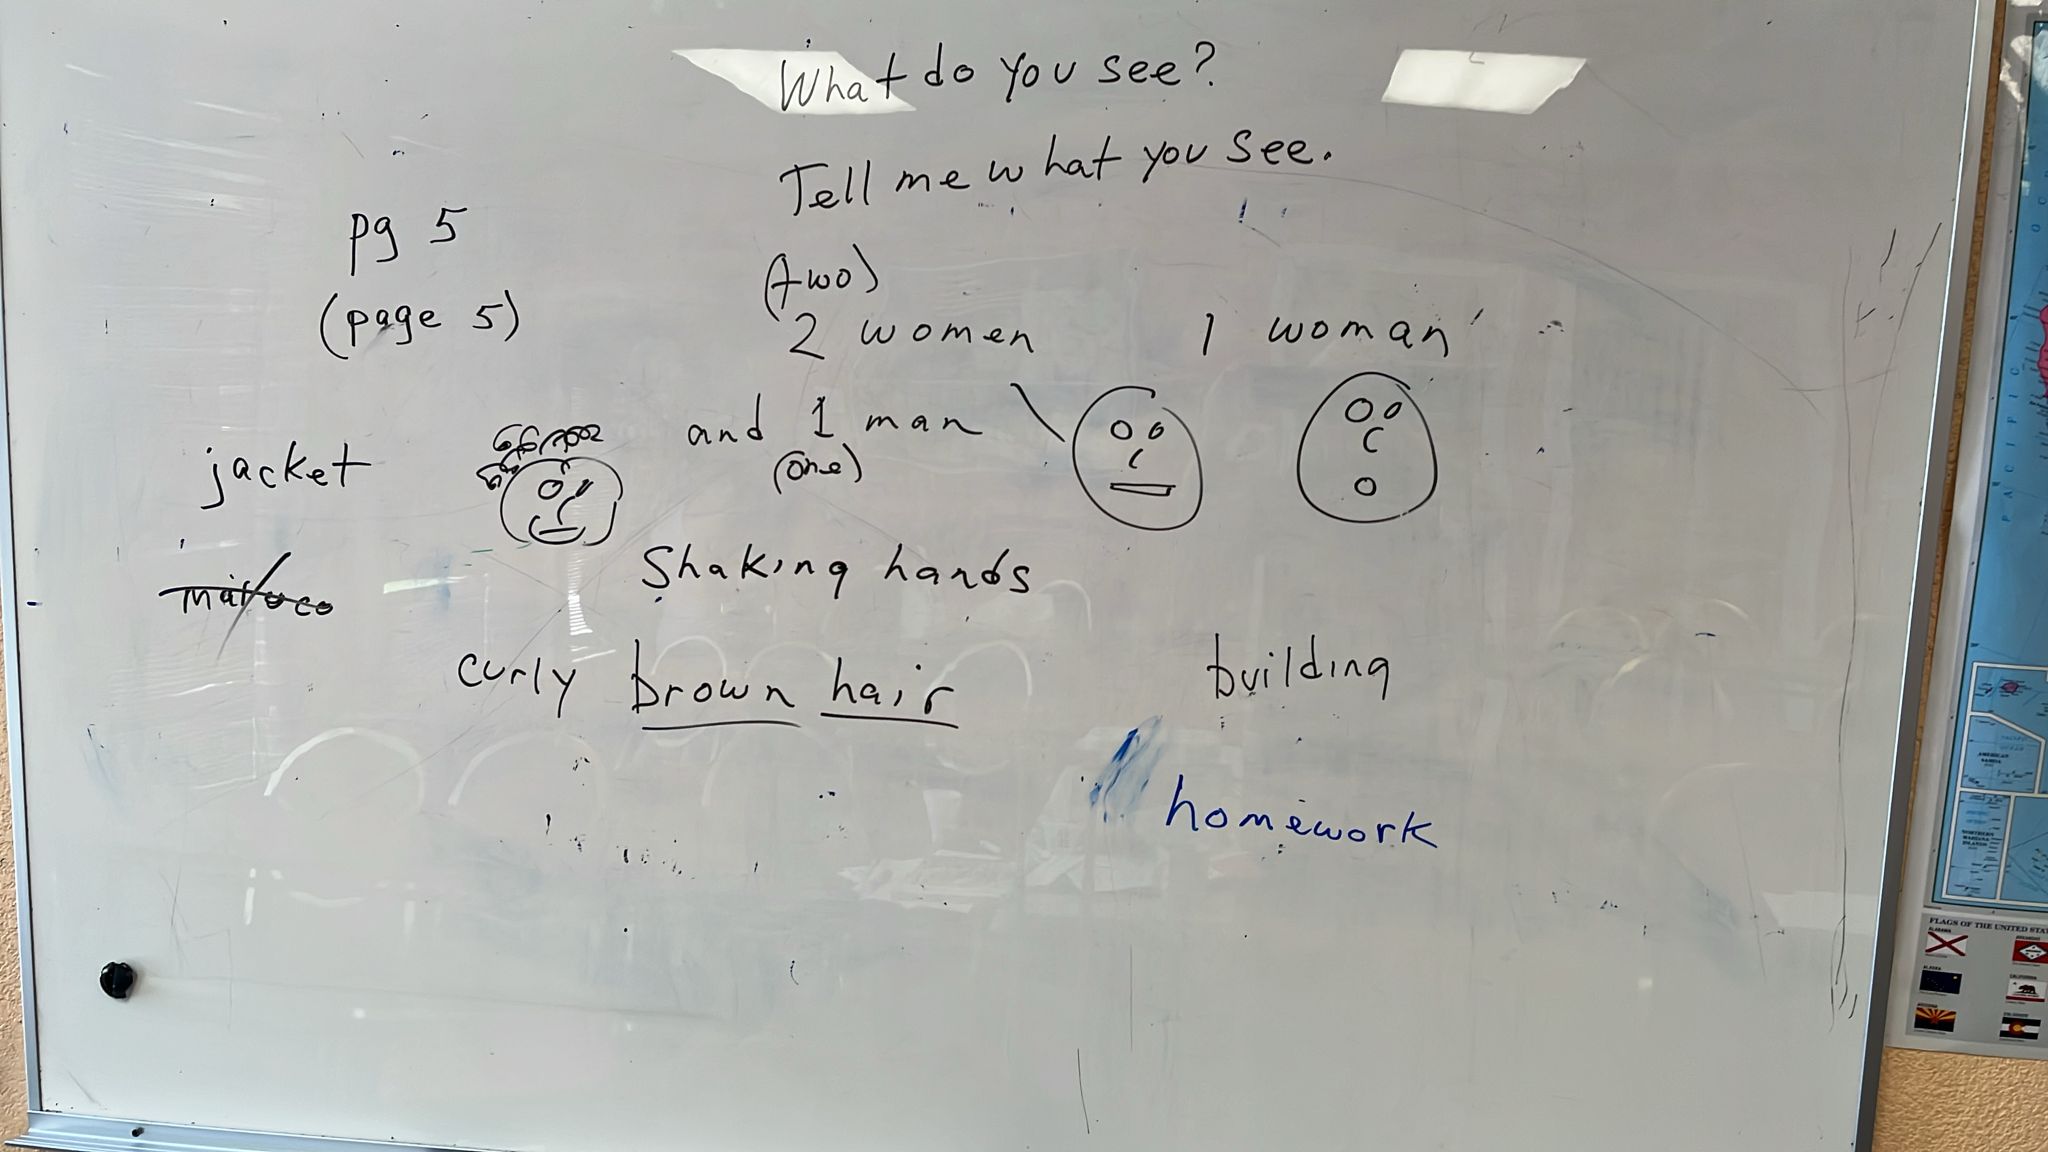 What do you see?
Tell me what you see.
pg 5
(page 5)
(two)
2 women
1 woman
and 1 man
(one)
jacket
Shaking hands
curly brown hair
building
homework
PACIFIC
AMERICAN SAMOA
NORTHERN MARIANA ISLANDS
FLAGS OF THE UNITED STA
ALABAMA
ALASKA
CALIFORNIA